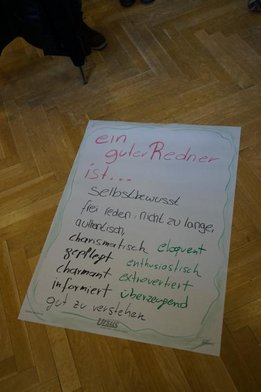 ein
guter Redner
ist...
selbstbewusst
frei reden, nicht zu lange,
authentisch,
charismatisch eloquent
gepflegt enthusiastisch
charmant extrovertiert
informiert überzeugend
gut zu verstehen